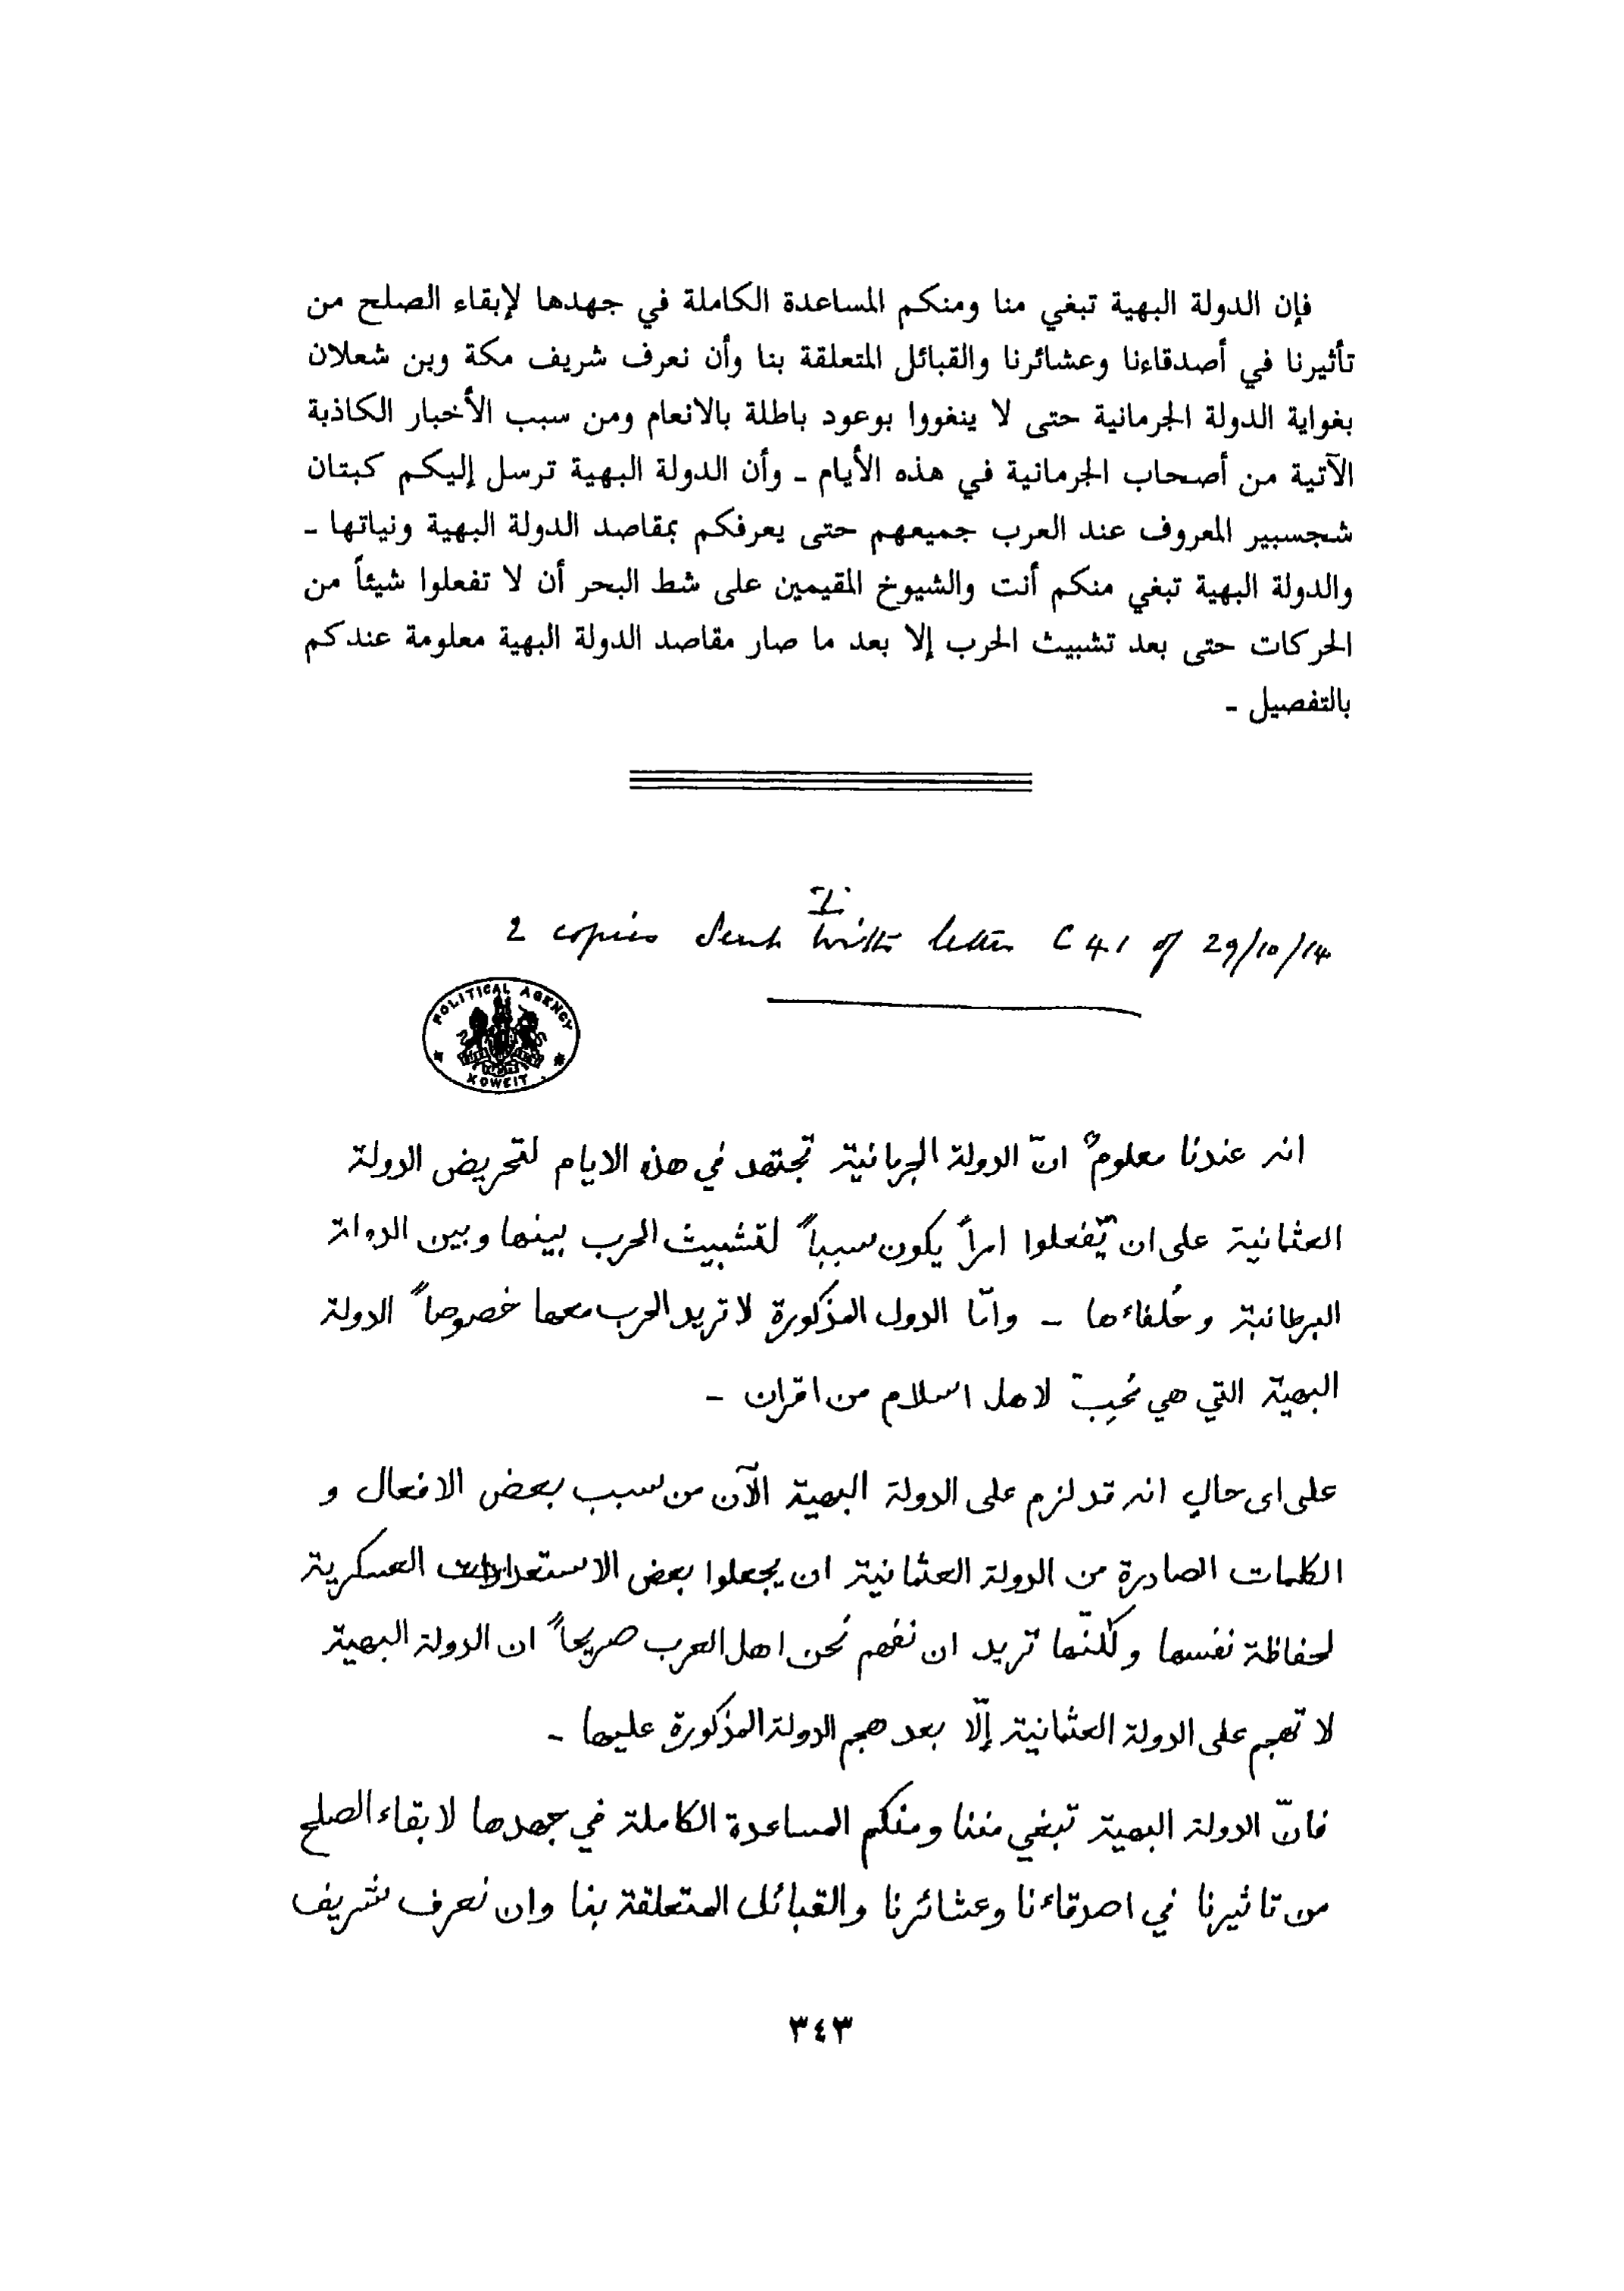 فإن الدولة البهية تبغي منا ومنكم المساعدة الكاملة في جهدها لإبقاء الصلح من
تأثيرنا في أصدقاءنا وعشائرنا والقبائل المتعلقة بنا وأن نعرف شريف مكة وبن شعلان
بغواية الدولة الجرمانية حتى لا ينغووا بوعود باطلة بالانعام ومن سبب الأخبار الكاذبة
الآتية من أصحاب الجرمانية في هذه الأيام ـ وأن الدولة البهية ترسل إليكم كبتان
شجسبير المعروف عند العرب جميعهم حتى يعرفكم بمقاصد الدولة البهية ونياتها ـ
والدولة البهية تبغي منكم أنت والشيوخ المقيمين على شط البحر أن لا تفعلوا شيئاً من
الحركات حتى بعد تشبيث الحرب إلا بعد ما صار مقاصد الدولة البهية معلومة عندكم
بالتفصيل ـ
I
2 copies sent with letter C 41 of 29/10/14
POLITICAL AGENCY
KOWEIT
انه عندنا معلومٌ انّ الدولة الجرمانية تجتهد في هذه الايام لتحريض الدولة
العثمانية على ان يّفعلوا امراً يكون سبباً لتشبيث الحرب بينها وبين الدولة
البرطانية وحُلفاءها ـ وامّا الدول المذكورة لا تريد الحرب معها خصوصاً الدولة
البهية التي هي مُحِبّ لاهل اسلام من اقران ـ
على اى حالٍ انه قد لزم على الدولة البهية الآن من سبب بعض الافعال و
الكلمات الصادرة من الدولة العثمانية ان يجعلوا بعض الاستعدادات العسكرية
لحفاظة نفسها ولٰكنّها تريد ان نفهم نحن اهل العرب صريحاً ان الدولة البهية
لا تهجم على الدولة العثمانية إلّا بعد هجم الدولة المذكورة عليها ـ
فانّ الدولة البهية تبغي مننا ومنكم المساعدة الكاملة في جهدها لابقاء الصلح
من تاثيرنا في اصدقاءنا وعشائرنا والقبائل المتعلقة بنا وان نعرف شريف
٣٤٣